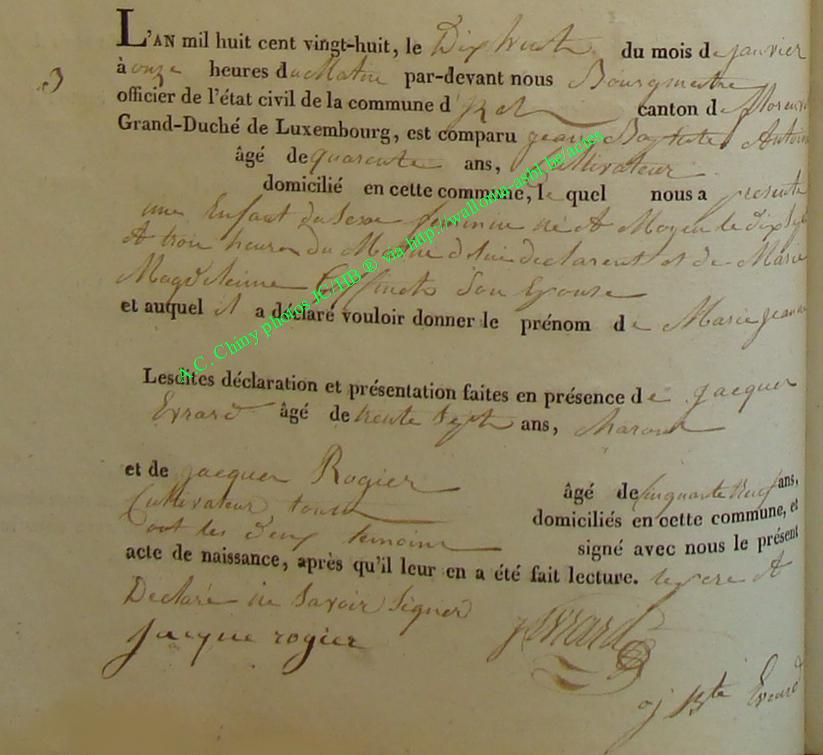 L'AN mil huit cent vingt-huit, le Dix huit du mois de janvier
3 à onze heures du Matin par-devant nous Bourgmestre
officier de l'état civil de la commune d'Izel canton de Florenvil
Grand-Duché de Luxembourg, est comparu jean Baptiste Antoin
âgé de quarente ans, Cultivateur
domicilié en cette commune, le quel nous a presenté
une Enfant du Sexe feminin né A Moyen le dix sept
A trois heures du Matin de lui declarent et de Marie
Magdeleinne son Epouse
et auquel il a déclaré vouloir donner le prénom de Marie jeanne
Lesdites déclaration et présentation faites en présence de jacques
Evrard âgé de trente sept ans, Maron
et de jacques Rogier âgé de Cinquante neuf ans,
Cultivateur tous domiciliés en cette commune, et
ont les deux temoins signé avec nous le présent
acte de naissance, après qu'il leur en a été fait lecture. le pere A
Declaré ne Savoir Signer
jacque rogier j Evrard
j Bte Evrard
A.C. Chiny photos JC/HB ® via http://wallonia-asbl.be/actes